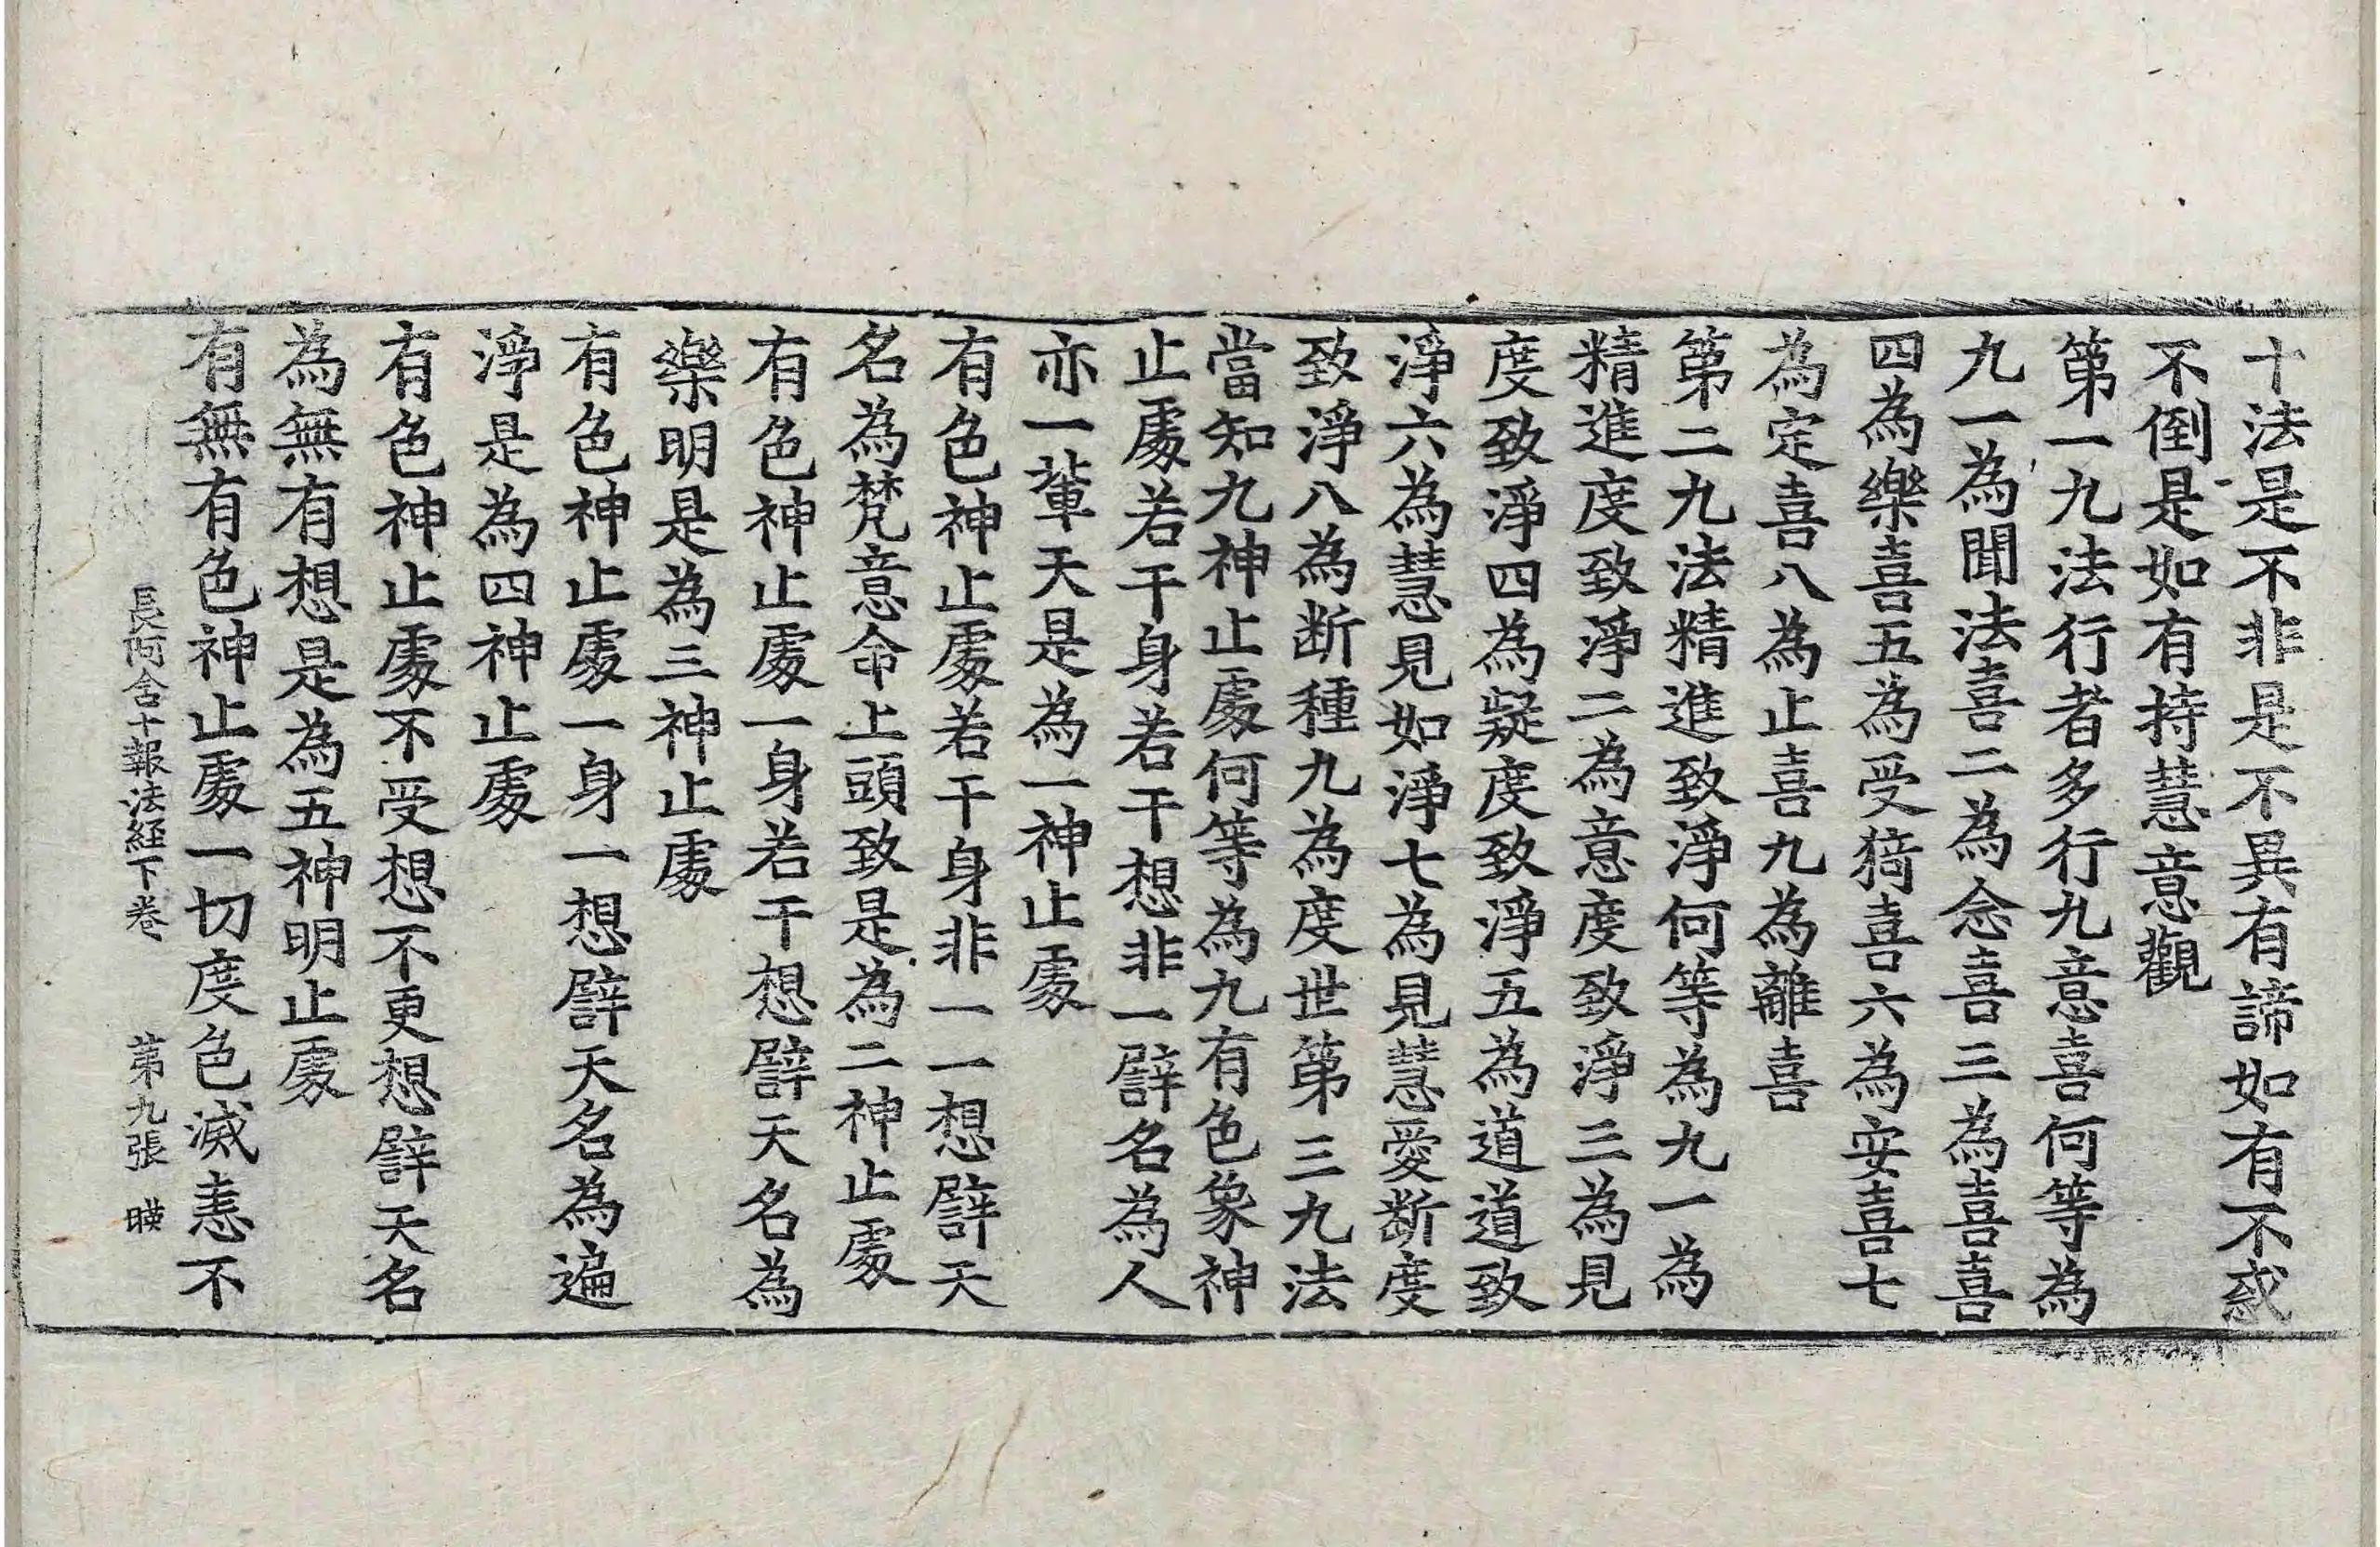 十法是不非是不異有諦如有不惑
不倒是如有持慧意觀
第一九法行者多行九意喜何等為
九一為聞法喜二為念喜三為喜喜
四為樂喜五為受猗喜六為安喜七
為定喜八為止喜九為離喜
第二九法精進致淨何等為九一為
精進度致淨二為意度致淨三為見
度致淨四為疑度致淨五為道道致
淨六為慧見如淨七為見慧愛斷度
致淨八為斷種九為度世第三九法
當知九神止處何等為九有色象神
止處若干身若干想非一譬名為人
亦一輩天是為一神止處
有色神止處若干身非一一想譬天
名為梵意命上頭致是為二神止處
有色神止處一身若干想譬天名為
樂明是為三神止處
有色神止處一身一想譬天名為遍
淨是為四神止處
有色神止處不受想不更想譬天名
為無有想是為五神明止處
有無有色神止處一切度色滅恚不
長阿含十報法經下卷 第九張 暎